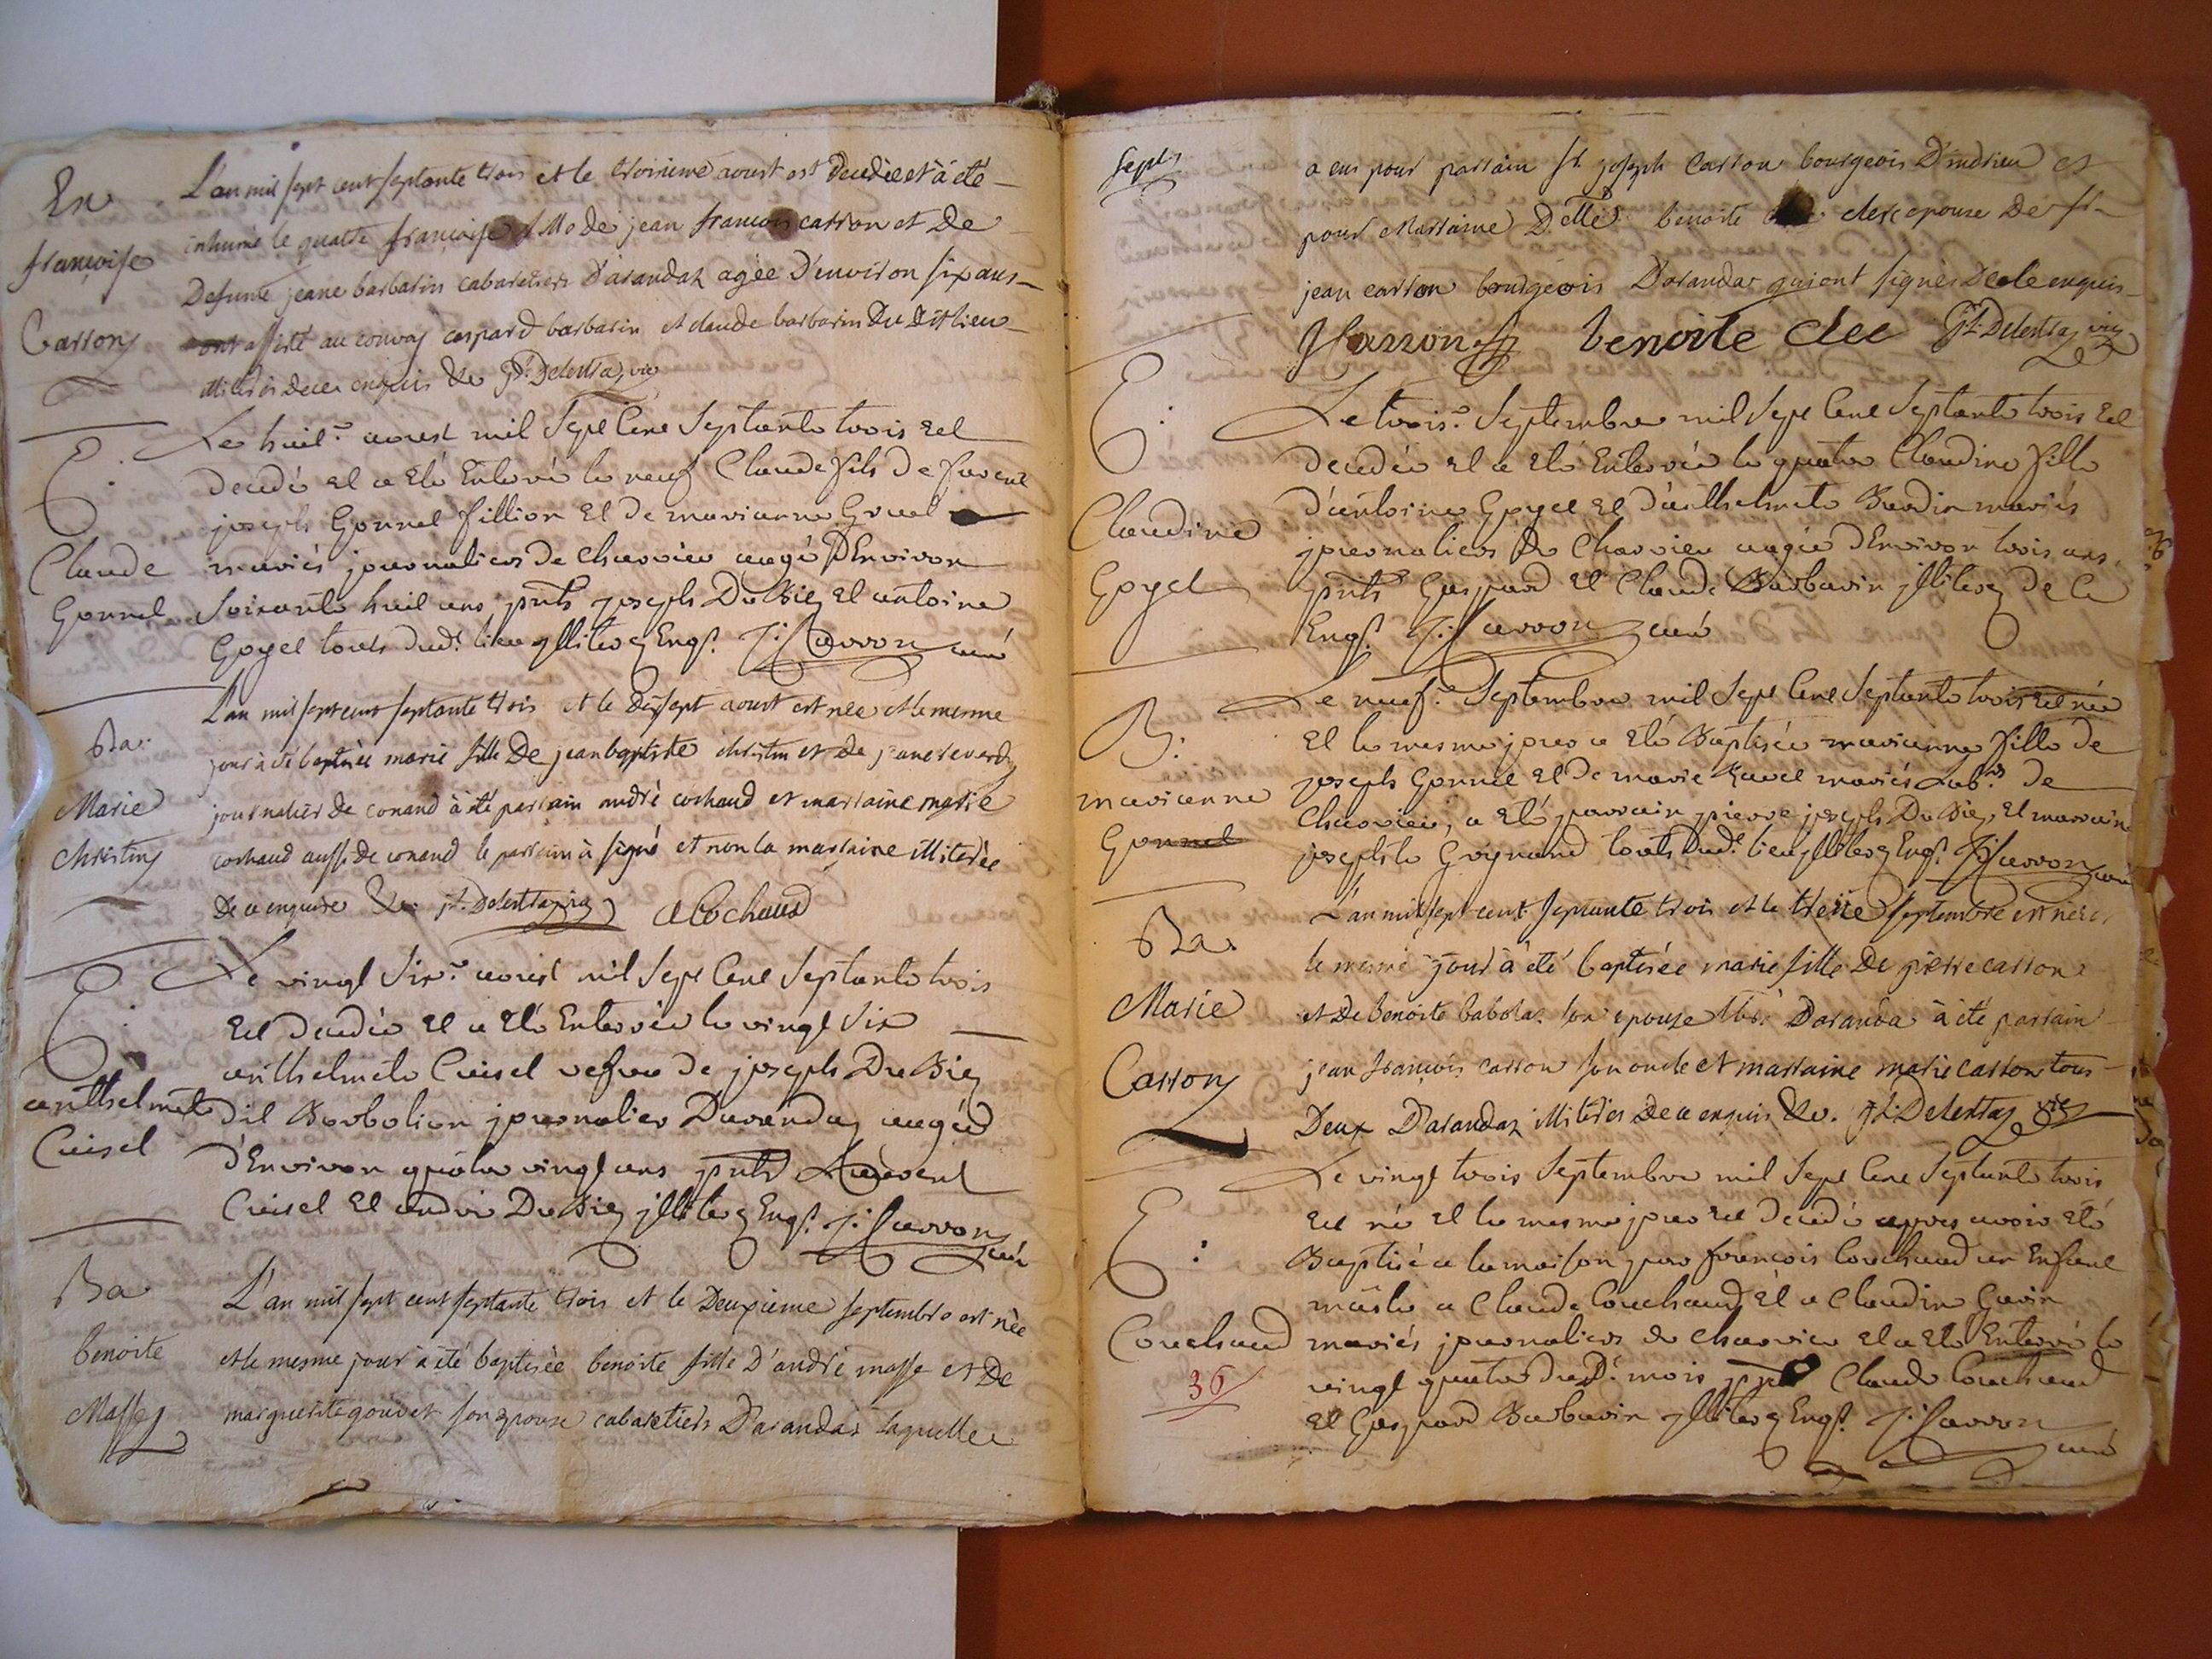 En
françoise
Carron
L'an mil sept cent septante trois et le troisieme aoust est decedée et à été
inhumé le quatre françoise fille de jean françois carron et De
Defunte jeane barbarin cabaretiers D'arandaz agée D'environ six ans
ont assisté au convoy caspard barbarin et claude barbarin Du dit lieu
illiterés de ce enquis &c jt: Delestra vic
E:
Claude
Gonnel
Le huit.e aoust mil Sept Cent Septante trois est
decedé et a Eté Enterré le neuf Claude fils de
joseph Gonnel fillion et de marianne
mariés journaliers de charvieu aagé d'Environ
Soixante huit ans pnts joseph DuBiez et antoine
Goyet touts dud.t lieu illiterez Enq.s J: Carron curé
Ba.
Marie
Christin
L'an mil sept cent septante trois et le dixsept aoust est née et le mesme
jour à été baptisée marie fille De jean baptiste christin et de jeane reverdy
journalier de conand à été parrain andré cochaud et marraine marie
cochaud aussi de conand le parrain à signé et non la marraine illiterée
De ce enquise &c. jt. Delestra vic a Cochaud
E:
anthelmete
Cuisel
Le vingt Six.e aoust mil Sept Cent Septante trois
est decedée et a Eté Enterrée le vingt Six
anthelmete Cuisel vefve de joseph DuBiez
dit Borbolion journalier Darandaz aagée
d'Environ quatre vingt ans pnts Laurent
Cuisel et andré DuBiez illiterez Enq.s J: Carron
curé
Ba
benoite
Masse
L'an mil sept cent septante trois et le Deuxieme septembre est née
et le mesme jour à été baptisée benoite fille D'andré masse et De
marguerite gouvet son epouse cabaretiers D'arandas laquelle
Sept.
a eus pour parrain Sr. joseph Carron bourgeois D'indrieu et
pour Marraine D.elle benoite clerc epouse De Sr
jean carron bourgeois D'arandas qui ont signés de ce enquis
JCarron benoite clec jt: Delestra vic
E:
Claudine
Goyet
Le trois.e Septembre mil Sept Cent Septante trois est
decedée et a Eté Enterrée le quatre Claudine fille
d'antoine Goyet et d'anthelmete Bardin mariés
journaliers de Charvieu aagée d'Environ trois ans,
pnts Gaspard et Claude Barbarin illiterez de ce
Enq.s J: Carron curé
B:
marianne
Gonnel
Le neuf.e Septembre mil Sept Cent Septante trois est née
et le mesme jour a Eté Baptisée marianne fille de
joseph Gonnel et de marie mariés Lab.rs de
Charvieu, a Eté parrain pierre joseph DuBiez, et marraine
josephte Grynand touts dud.t lieu illiterez Enq.s J: Carron curé
Ba.
Marie
Carron
L'an mil sept cent septante trois et le treize septembre est née et
le mesme jour à été baptisée marie fille De pierre carron
et De benoite babolaz son epouse Daranda à été parrain
jean françois carron son oncle et marraine marie carron tous
Deux D'arandaz illiterés de ce enquis &c. jt: Delestra vic
E:
Couchaud
Le vingt trois Septembre mil Sept Cent Septante trois
est né et le mesme jour est decedé apres avoir Eté
Baptisé a la maison par françois Couchaud un Enfant
mâle a Claude Couchaud et a Claudine Gavin
mariés journaliers de charvieu et a Eté Enterré le
vingt quatre dud.t mois pnts Claude Couchaud
et Gaspard Barbarin illiterez Enq.s J: Carron
curé
36